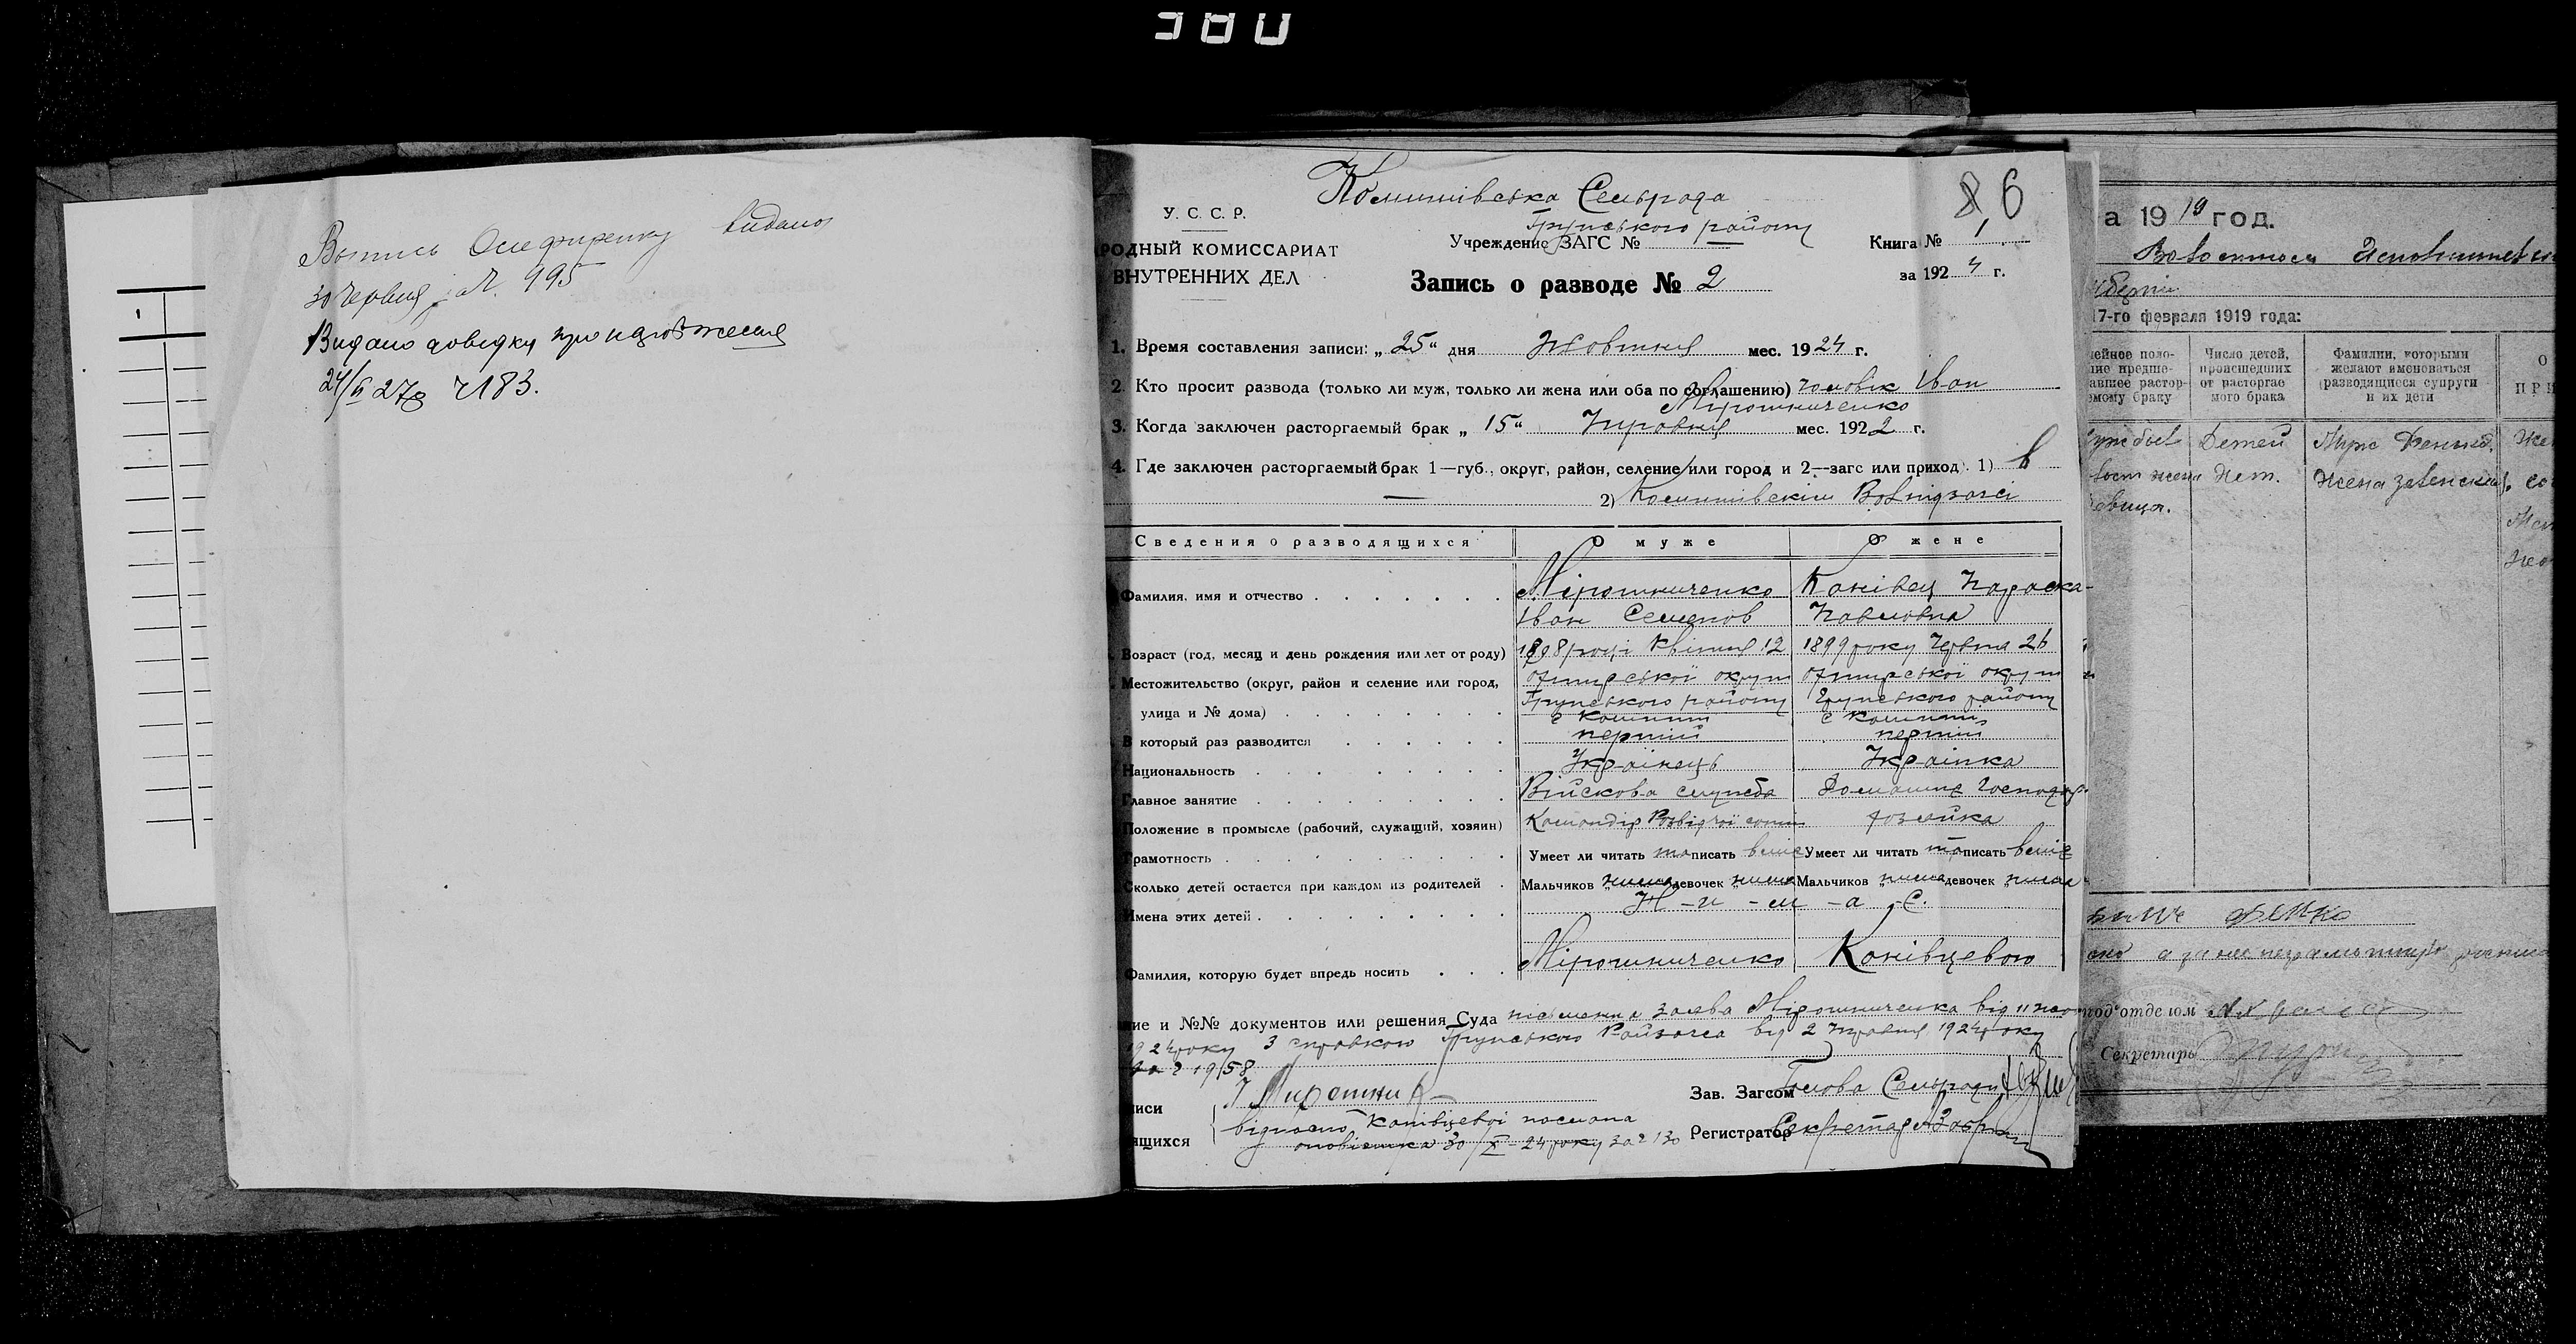 380
Випись Онефиренку видано
30 червня за №. 995
Видано довідку про народження
24/VI 27р №183.
Комишівська Сельрада
Грунського району
86
У. С. С. Р.
РОДНЫЙ КОМИССАРИАТ
ВНУТРЕННИХ ДЕЛ
Учреждение ЗАГС № —
Книга № 1
за 1924 г.
Запись о разводе № 2
1. Время составления записи: „25“ дня Жовтня мес. 1924 г.
2. Кто просит развода (только ли муж, только ли жена или оба по соглашению) чоловік Іван
Мірошниченко
3. Когда заключен расторгаемый брак „15“ Травня мес. 1922 г.
4. Где заключен расторгаемый брак 1—губ., округ, район, селение или город и 2—загс или приход. 1) в
— 2) Комишівскім
Сведения о разводящихся О муже О жене
Фамилия, имя и отчество Мірошниченко Іван Семенов Канівец Параска Павловна
Возраст (год, месяц и день рождения или лет от роду) 1898 році Квітня 12 1899 року Червня 26
Местожительство (округ, район и селение или город, улица и № дома) Охтирської округи Грунського району с Комиші Охтирської округи Грунського району с Комиші
В который раз разводится перший перший
Национальность Українець Українка
Главное занятие Війскова служба Домашнє Господар.
Положение в промысле (рабочий, служащий, хозяин) Командір Розвідчої сотні хозяйка
Грамотность Умеет ли читать та писать вміє Умеет ли читать та писать вміє
Сколько детей остается при каждом из родителей Мальчиков нима девочек нима Мальчиков нима девочек нима
Имена этих детей Н - и - м - а - Є.
Фамилия, которую будет впредь носить Мірошниченко Канівцевою
ние и №№ документов или решения Суда письменна заява Мірошниченка від 11 жов
1924 року з справкою Грунського Райзагса від 2 травня 1924 року
за № 1958
писи
ящихся
відносно Канівцевої послана
оповістка 30/X–24 року за № 130
Зав. Загсом Голова Сельради
Регистратор Секретар
а 1919 год.
17-го февраля 1919 года:
ейное поло-
ние предше-
авшее растор-
емому браку
Число детей,
происшедших
от расторгае
мого брака
Фамилии, которыми
желают именоваться
разводящиеся супруги
и их дети
О
ПРИ
Детей
Нет.
Жена
под‘отделом
Секретарь